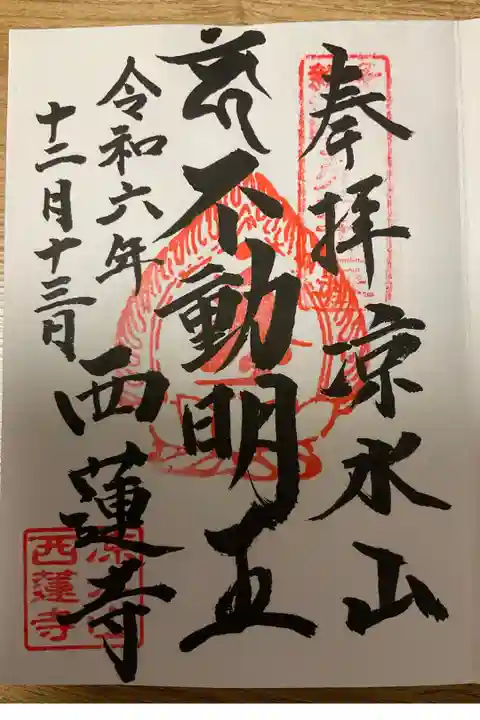 奉拝 涼水山
不動明王
西蓮寺
令和六年
十二月十三日
西蓮寺